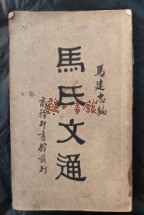 馬建忠編
馬氏文通
商務印書館發行